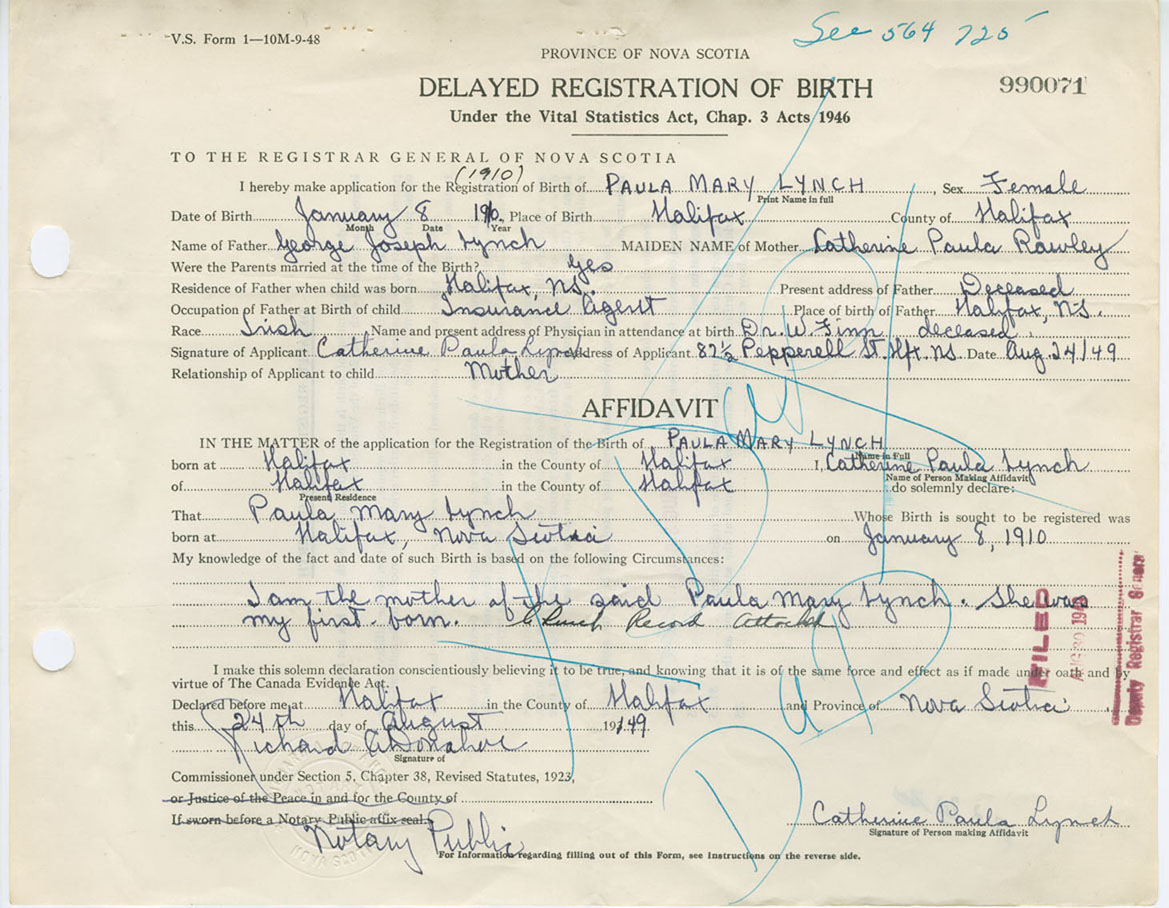 V.S. Form 1—10M-9-48
See 564 725
PROVINCE OF NOVA SCOTIA
DELAYED REGISTRATION OF BIRTH
990071
Under the Vital Statistics Act, Chap. 3 Acts 1946
TO THE REGISTRAR GENERAL OF NOVA SCOTIA
(1910)
I hereby make application for the Registration of Birth of PAULA MARY LYNCH, Sex Female
Print Name in full
Date of Birth January 8 1910. Place of Birth Halifax County of Halifax
Month Date Year
Name of Father George Joseph Lynch MAIDEN NAME of Mother Catherine Paula Rawley
Were the Parents married at the time of the Birth? Yes
Residence of Father when child was born Halifax, N.S. Present address of Father Deceased
Occupation of Father at Birth of child Insurance Agent Place of birth of Father Halifax, N.S.
Race Irish Name and present address of Physician in attendance at birth Dr. W. Finn deceased
Signature of Applicant Catherine Paula Lynch Address of Applicant 87½ Pepperell St. Hfx. N.S. Date Aug. 24/49
Relationship of Applicant to child Mother
AFFIDAVIT
IN THE MATTER of the application for the Registration of the Birth of PAULA MARY LYNCH
Name in Full
born at Halifax in the County of Halifax I, Catherine Paula Lynch
Name of Person Making Affidavit
of Halifax in the County of Halifax do solemnly declare:
Present Residence
That Paula Mary Lynch Whose Birth is sought to be registered was
born at Halifax, Nova Scotia on January 8, 1910
My knowledge of the fact and date of such Birth is based on the following Circumstances:
I am the mother of the said Paula Mary Lynch. She was
my first-born. Church Record Attached
FILED
Deputy Registrar General
I make this solemn declaration conscientiously believing it to be true, and knowing that it is of the same force and effect as if made under oath and by
virtue of The Canada Evidence Act.
Declared before me at Halifax in the County of Halifax and Province of Nova Scotia
this 24th day of August 1949
Richard A Donahoe
Signature of
Commissioner under Section 5, Chapter 38, Revised Statutes, 1923,
or Justice of the Peace in and for the County of
If sworn before a Notary Public affix seal.
Notary Public
Catherine Paula Lynch
Signature of Person making Affidavit
For Information regarding filling out of this Form, see Instructions on the reverse side.
DUP